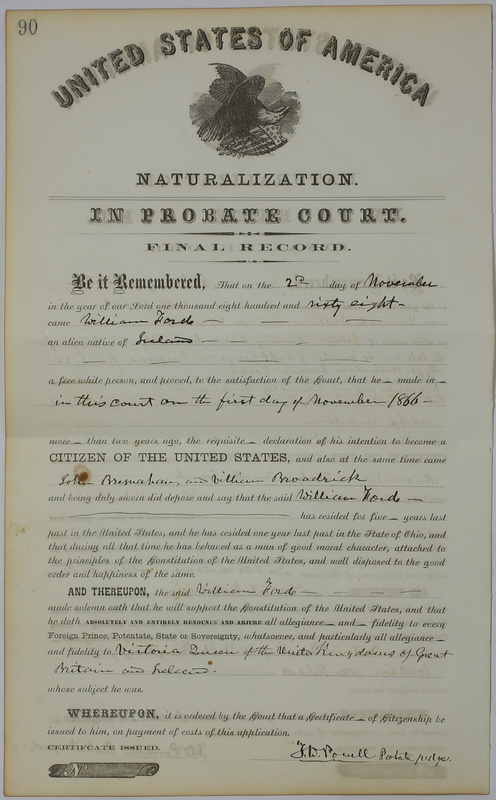 90
UNITED STATES OF AMERICA
NATURALIZATION.
IN PROBATE COURT.
FINAL RECORD.
Be it Remembered, That on the 2nd day of November
in the year of our Lord one thousand eight hundred and sixty eight-
came William Forde
an alien native of Ireland
a free white person, and proved, to the satisfaction of the Court, that he made in
in this court on the first day of November 1866
more than two years ago, the requisite declaration of his intention to become a
CITIZEN OF THE UNITED STATES, and also at the same time came
John Bresnahan, and William Broadrick
and being duly sworn did depose and say that the said William Forde
has resided for five years last
past in the United States, and he has resided one year last past in the State of Ohio, and
that during all that time he has behaved as a man of good moral character, attached to
the principles of the Constitution of the United States, and well disposed to the good
order and happiness of the same.
AND THEREUPON, the said William Forde
made solemn oath that he will support the Constitution of the United States, and that
he doth ABSOLUTELY AND ENTIRELY RENOUNCE AND ABJURE all allegiance and fidelity to every
Foreign Prince, Potentate, State or Sovereignty, whatsoever, and particularly all allegiance
and fidelity to Victoria Queen of the United Kingdoms of Great
Britain and Ireland.
whose subject he was.
WHEREUPON, it is ordered by the Court that a Certificate of Citizenship be
issued to him, on payment of costs of this application.
CERTIFCATE ISSUED.
F.D. Powell Probate judge.
No.